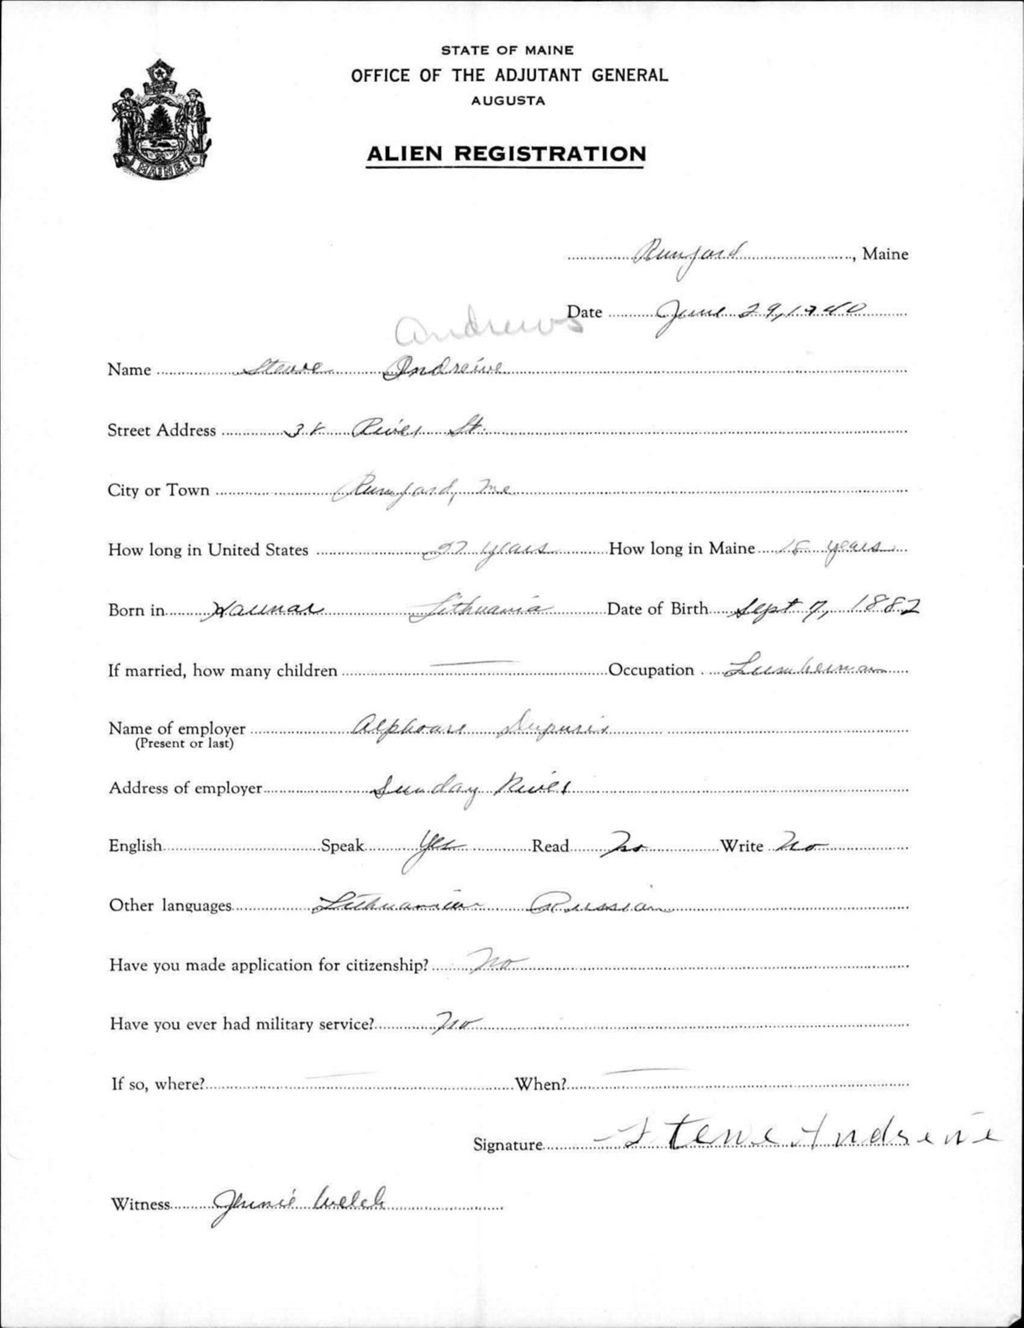 STATE OF MAINE
OFFICE OF THE ADJUTANT GENERAL
AUGUSTA
ALIEN REGISTRATION
MAINE
Rumford, Maine
Date June 29, 1940
Andrews
Name Stewe Andreiwe
Street Address 38 River St.
City or Town Rumford, Me
How long in United States 27 years How long in Maine 18 years
Born in Kaunas Lithuania Date of Birth Sept 7, 1882
If married, how many children — Occupation Lumberman
Name of employer Alphonse
(Present or last)
Address of employer Sunday River
English Speak Yes Read No Write No
Other languages Lithuanian Russian
Have you made application for citizenship? No
Have you ever had military service? No
If so, where? — When? —
Signature Stewe Andreiwe
Witness Jennie Welch